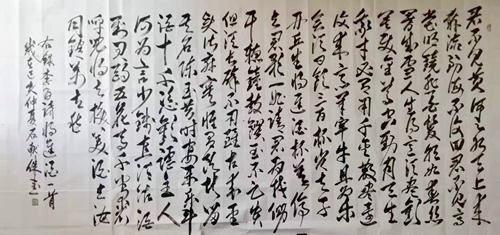 君不见黄河之水天上来
奔流到海不复回君不见高
堂明镜悲白发朝如青丝
暮成雪人生得意须尽欢
莫使金樽空对月天生
我材必有用千金散尽还
复来烹羊宰牛且为乐
会须一饮三百杯岑夫子
丹丘生将进酒杯莫停
与君歌一曲请君为我倾
耳听钟鼓馔玉不足贵
但愿长醉不愿醒古来圣
贤皆寂寞惟有饮者留
其名陈王昔时宴平乐斗
酒十千恣欢谑主人
何为言少钱径须沽酒
对君酌五花马千金裘
呼儿将出换美酒与尔
同销万古愁
右录李白诗将进酒一首
岁在仲夏石